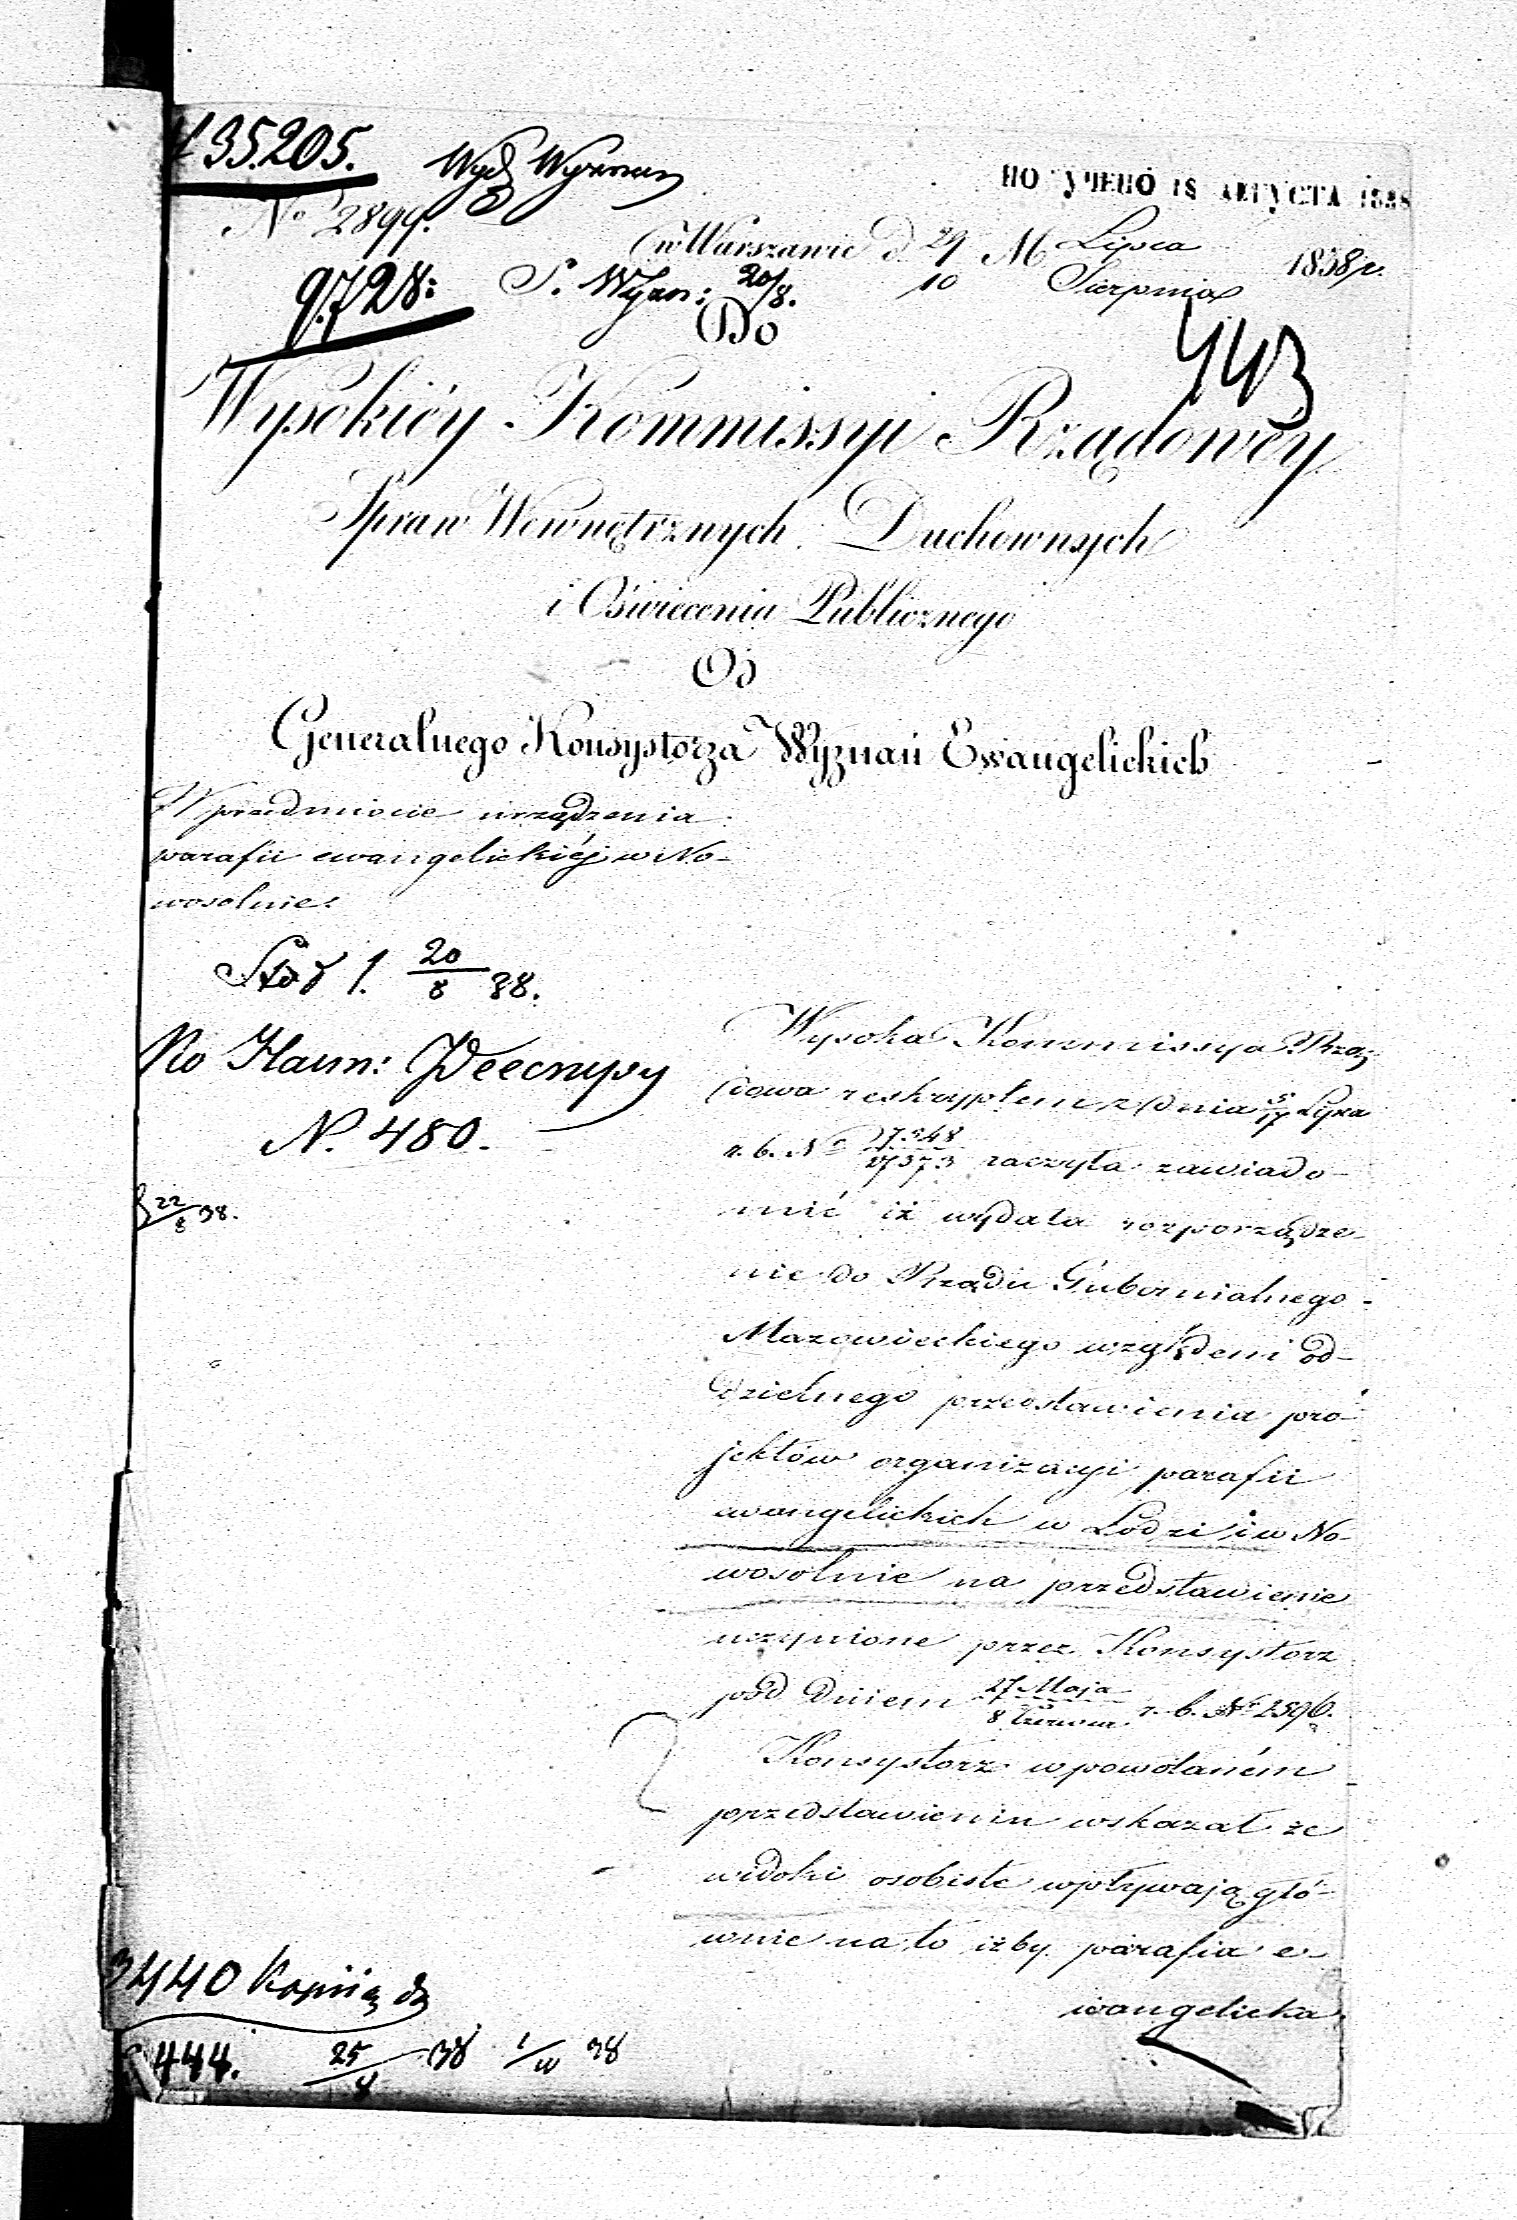 435.205.
Wyd Wyznan
ПОЛУЧЕНО 18 АВГУСТА 1838
No 2899.
w Warszawie d 29/10 M Lipca/Sierpnia 1838 r.
9.728:
S. Wyzn: 20/8.
Do
443
Wysokiéy Kommissyi Rządowéy
Spraw Wewnętrznych Duchownych
i Oświecenia Publicznego
Od
Generalnego Konsystorza Wyznań Ewangelickich
W przedmiocie urządzenia
parafii ewangelickiéj w No-
wosolnie.
20/8 38.
N. 480.
22/8 38.
Wysoka Kommissya Rzą-
dowa reskryptem z dnia 5/17 Lipca
r. b. No raczyła zawiado-
mić iż wydała rozporządze-
nie do Rządu Gubernialnego
Mazowieckiego względem od-
dzielnego przedstawienia pro-
jektów organizacyi parafii
ewangelickich w Łodzi i w No-
wosolnie na przedstawienie
uczynione przez Konsystorz
pod dniem 27 Maja/8 Czerwca r. b. No 2596.
Konsystorz w powołaném
przedstawieniu wskazał że
widoki osobiste wpływają głó-
wnie na to iżby parafia e-
wangelicka
3440
444. 25/8 38 38